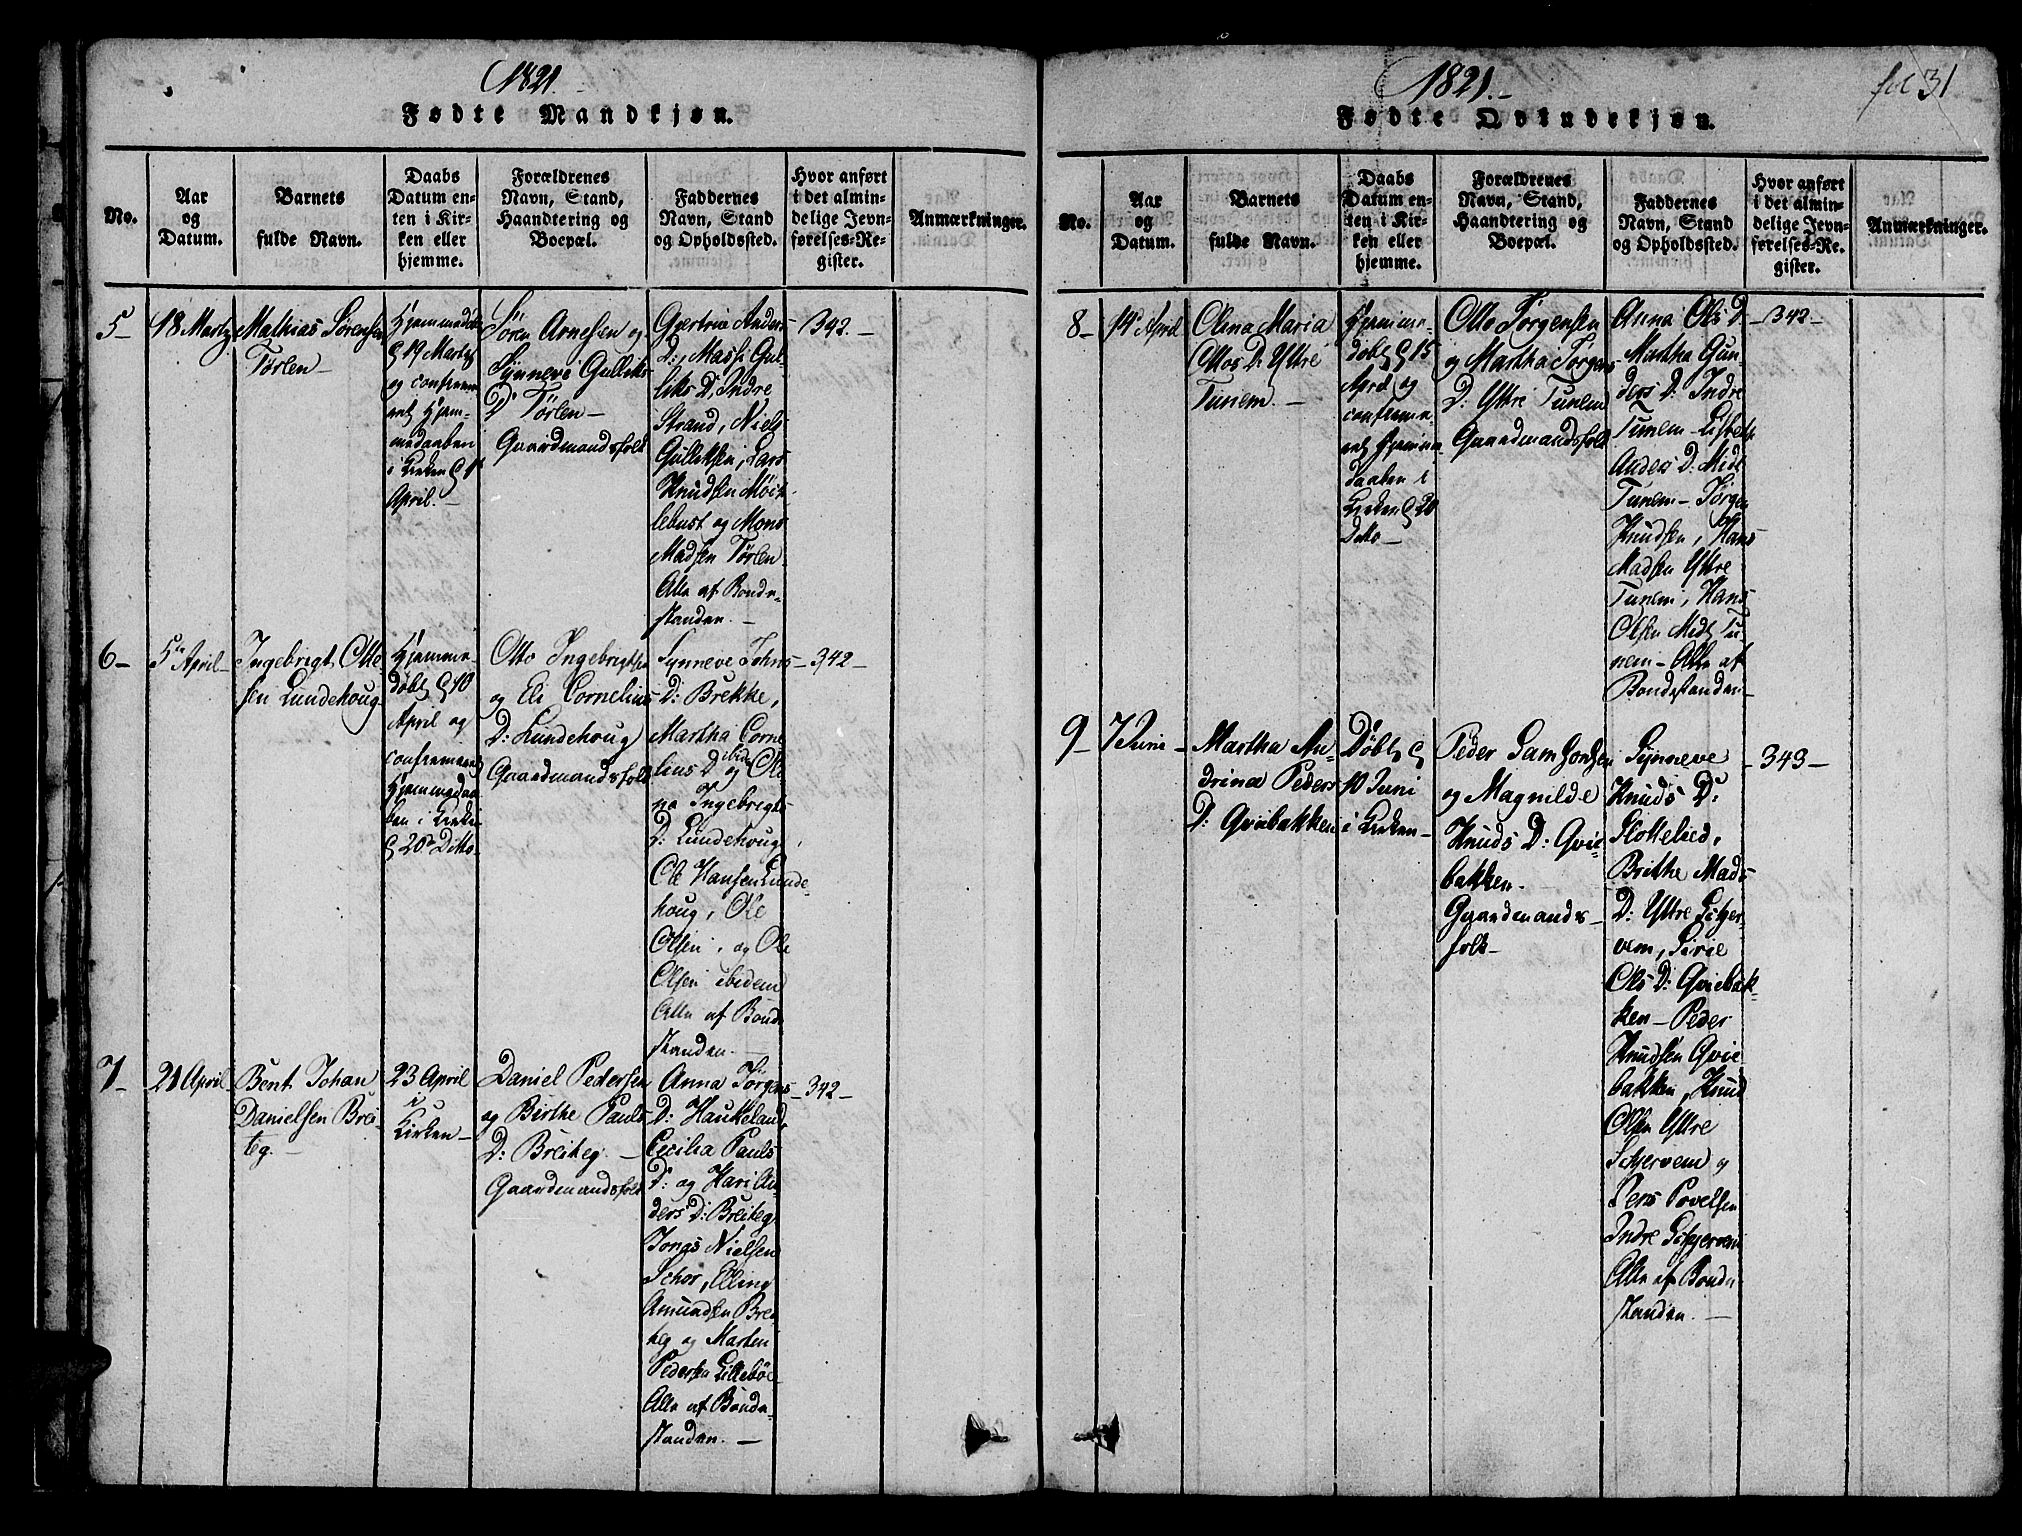 1821.
Fødte Mandkjøn.
No.
Aar
og
Datum.
Barnets
fulde Navn.
Daabs
Datum en-
ten i Kir-
ken eller
hjemme.
Forældrenes
Navn, Stand,
Haandtering og
Boepæl.
Faddernes
Navn, Stand
og Opholdssted.
Hvor anført
i det almin-
delige Jevn-
førelses-Re-
gister.
Anmærkninger.
5-
18 Martz
Mathias Sørensen
Tørlen
Hjemmedøbt
19 Martz
og confirme
ret Hjem-
medaaben
i Kirken
April.-
Sørn Arnesen og
Synneve Gulliks
D: Tørlen-
Gaardmandsfolk
Giertrue Anders
D:, Masti Gul-
liks D, Indre
Strand, Niels
Gulliksen, Lars
Knudsen Møck-
lebust og Mons
Madsen Tørlen.
Alle af Bonde-
standen.-
342.-
6-
5te April-
Ingebrigt Otte
sen Lundehoug
Hjemme-
døbt 10
April og
confirmeret
Hjemmedaa
ben i Kirken
20de Ditto-
Otto Ingebrigtsen
og Eli Cornelius
D: Lundehoug
Gaardmandsfolk
Synneve Johns-
D: Brekke,
Martha Corne
lius D ibid og Ole
na Ingebrigts
D: Lundehoug
Ole Hansen Lunde-
houg, Ole
Olsen, og Ole
Olsen ibidem
Alle af Bonde
standen.-
342-
7-
21 April-
Bent Johan
Danielsen Brei-
teg.-
23 April
i
Kirken-
Daniel Pedersen
og Birthe Pauls
D: Breiteg.-
Gaardmandsfolk
Anna Jørgens-
D: Haukeland,
Cecilia Pauls
D: og Kari An
ders D: Breiteg
Jonas Nielsen
Schor, Elling
Amundsen Brei
teg og Marten
Pedersen Lillebøe
Alle af Bonde-
standen.-
342-
1821.-
fol 31
Fødte Qvindekjøn.
No.
Aar
og
Datum.
Barnets
fulde Navn.
Daabs
Datum en-
ten i Kir-
ken eller
hjemme.
Forældrenes
Navn, Stand,
Haandtering og
Boepæl.
Faddernes
Navn, Stand
og Opholdssted.
Hvor anført
i det almin-
delige Jevn-
førelses-Re-
gister.
Anmærkninger.
8-
14de April
Olina Maria
Ottos D: Yttre
Tunem.-
Hjemme-
døbt 15
April og
confirme-
ret Hjemme
daaben i
Kirken 20
Ditto-
Otto Jørgensen
og Martha Jørgens
D: Yttre Tunem
Gaardmandsfolk
Anna Ols D-
Martha Gun
ders D: Indre
Tunem- Lisbeth
Anders D: Midt
Tunem- Jørgen
Knudsen, Hans
Madsen Yttre
Tunem, Hans
Olsen Midt Tu-
nem- Alle af
Bondestanden-
342-
9-
7 Juni-
Martha An-
drina Peders
D: Qviebakken
Døbt
10 Juni
i Kirken-
Peder Samsonsen
og Magnilde
Knuds D: Qvie-
bakken-
Gaardmands-
folk-
Synneve
Knuds D:
Slottelied,
Brithe Mads
D: Yttre Schjer-
vem, Sirie
Ols D: Qviebak-
ken- Peder
Knudsen Qvie
bakken, Knud
Olsen Yttre
Schjervem og
Pers Povelsen
Indre Schjervem
Alle af Bonde-
standen.-
343-